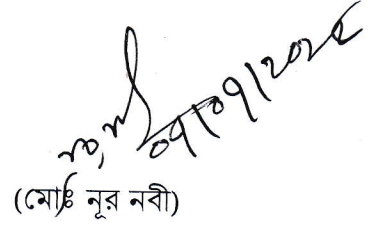 ০৭/০৭/২০২৫
(মোঃ নূর নবী)